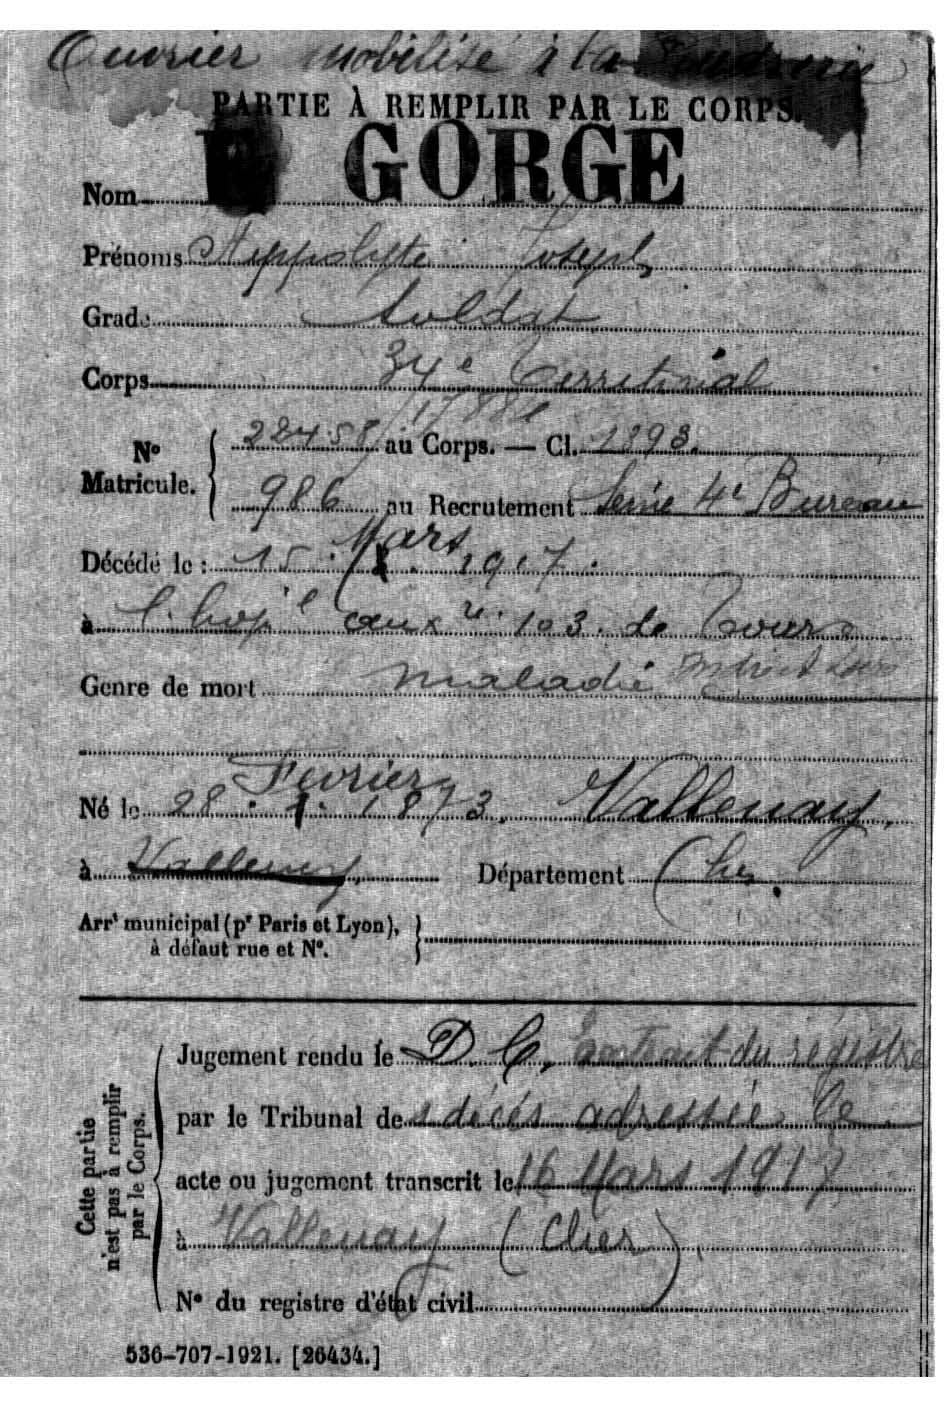 Ouvrier mobilisé à la Poudrerie
PARTIE À REMPLIR PAR LE CORPS.
Nom GORGE
Prénoms Hippolyte Joseph
Grade Soldat
Corps 34e Territorial
22458 au Corps. — Cl. 1893.
N° Matricule.
986 au Recrutement Seine 4e Bureau
Mars
Décédé le : 15 . 1917.
à l'hop'l aux re. 103. de Tours
Genre de mort maladie Indre et Loire
Février
Né le 28 . 1873. Vallenay.
à Vallenay, Département Cher.
Arrt municipal (pr Paris et Lyon),
à défaut rue et N°.
Cette partie
n'est pas à remplir
par le Corps.
Jugement rendu le D. C, Extrait du régistre
par le Tribunal de s décés adressée le
acte ou jugement transcrit le 16 Mars 1917
à Vallenay (Cher)
N° du registre d'état civil
536-707-1921. [26434.]